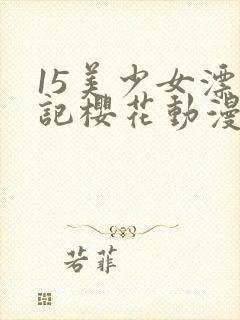 15美少女漂
記櫻花動漫
若菲